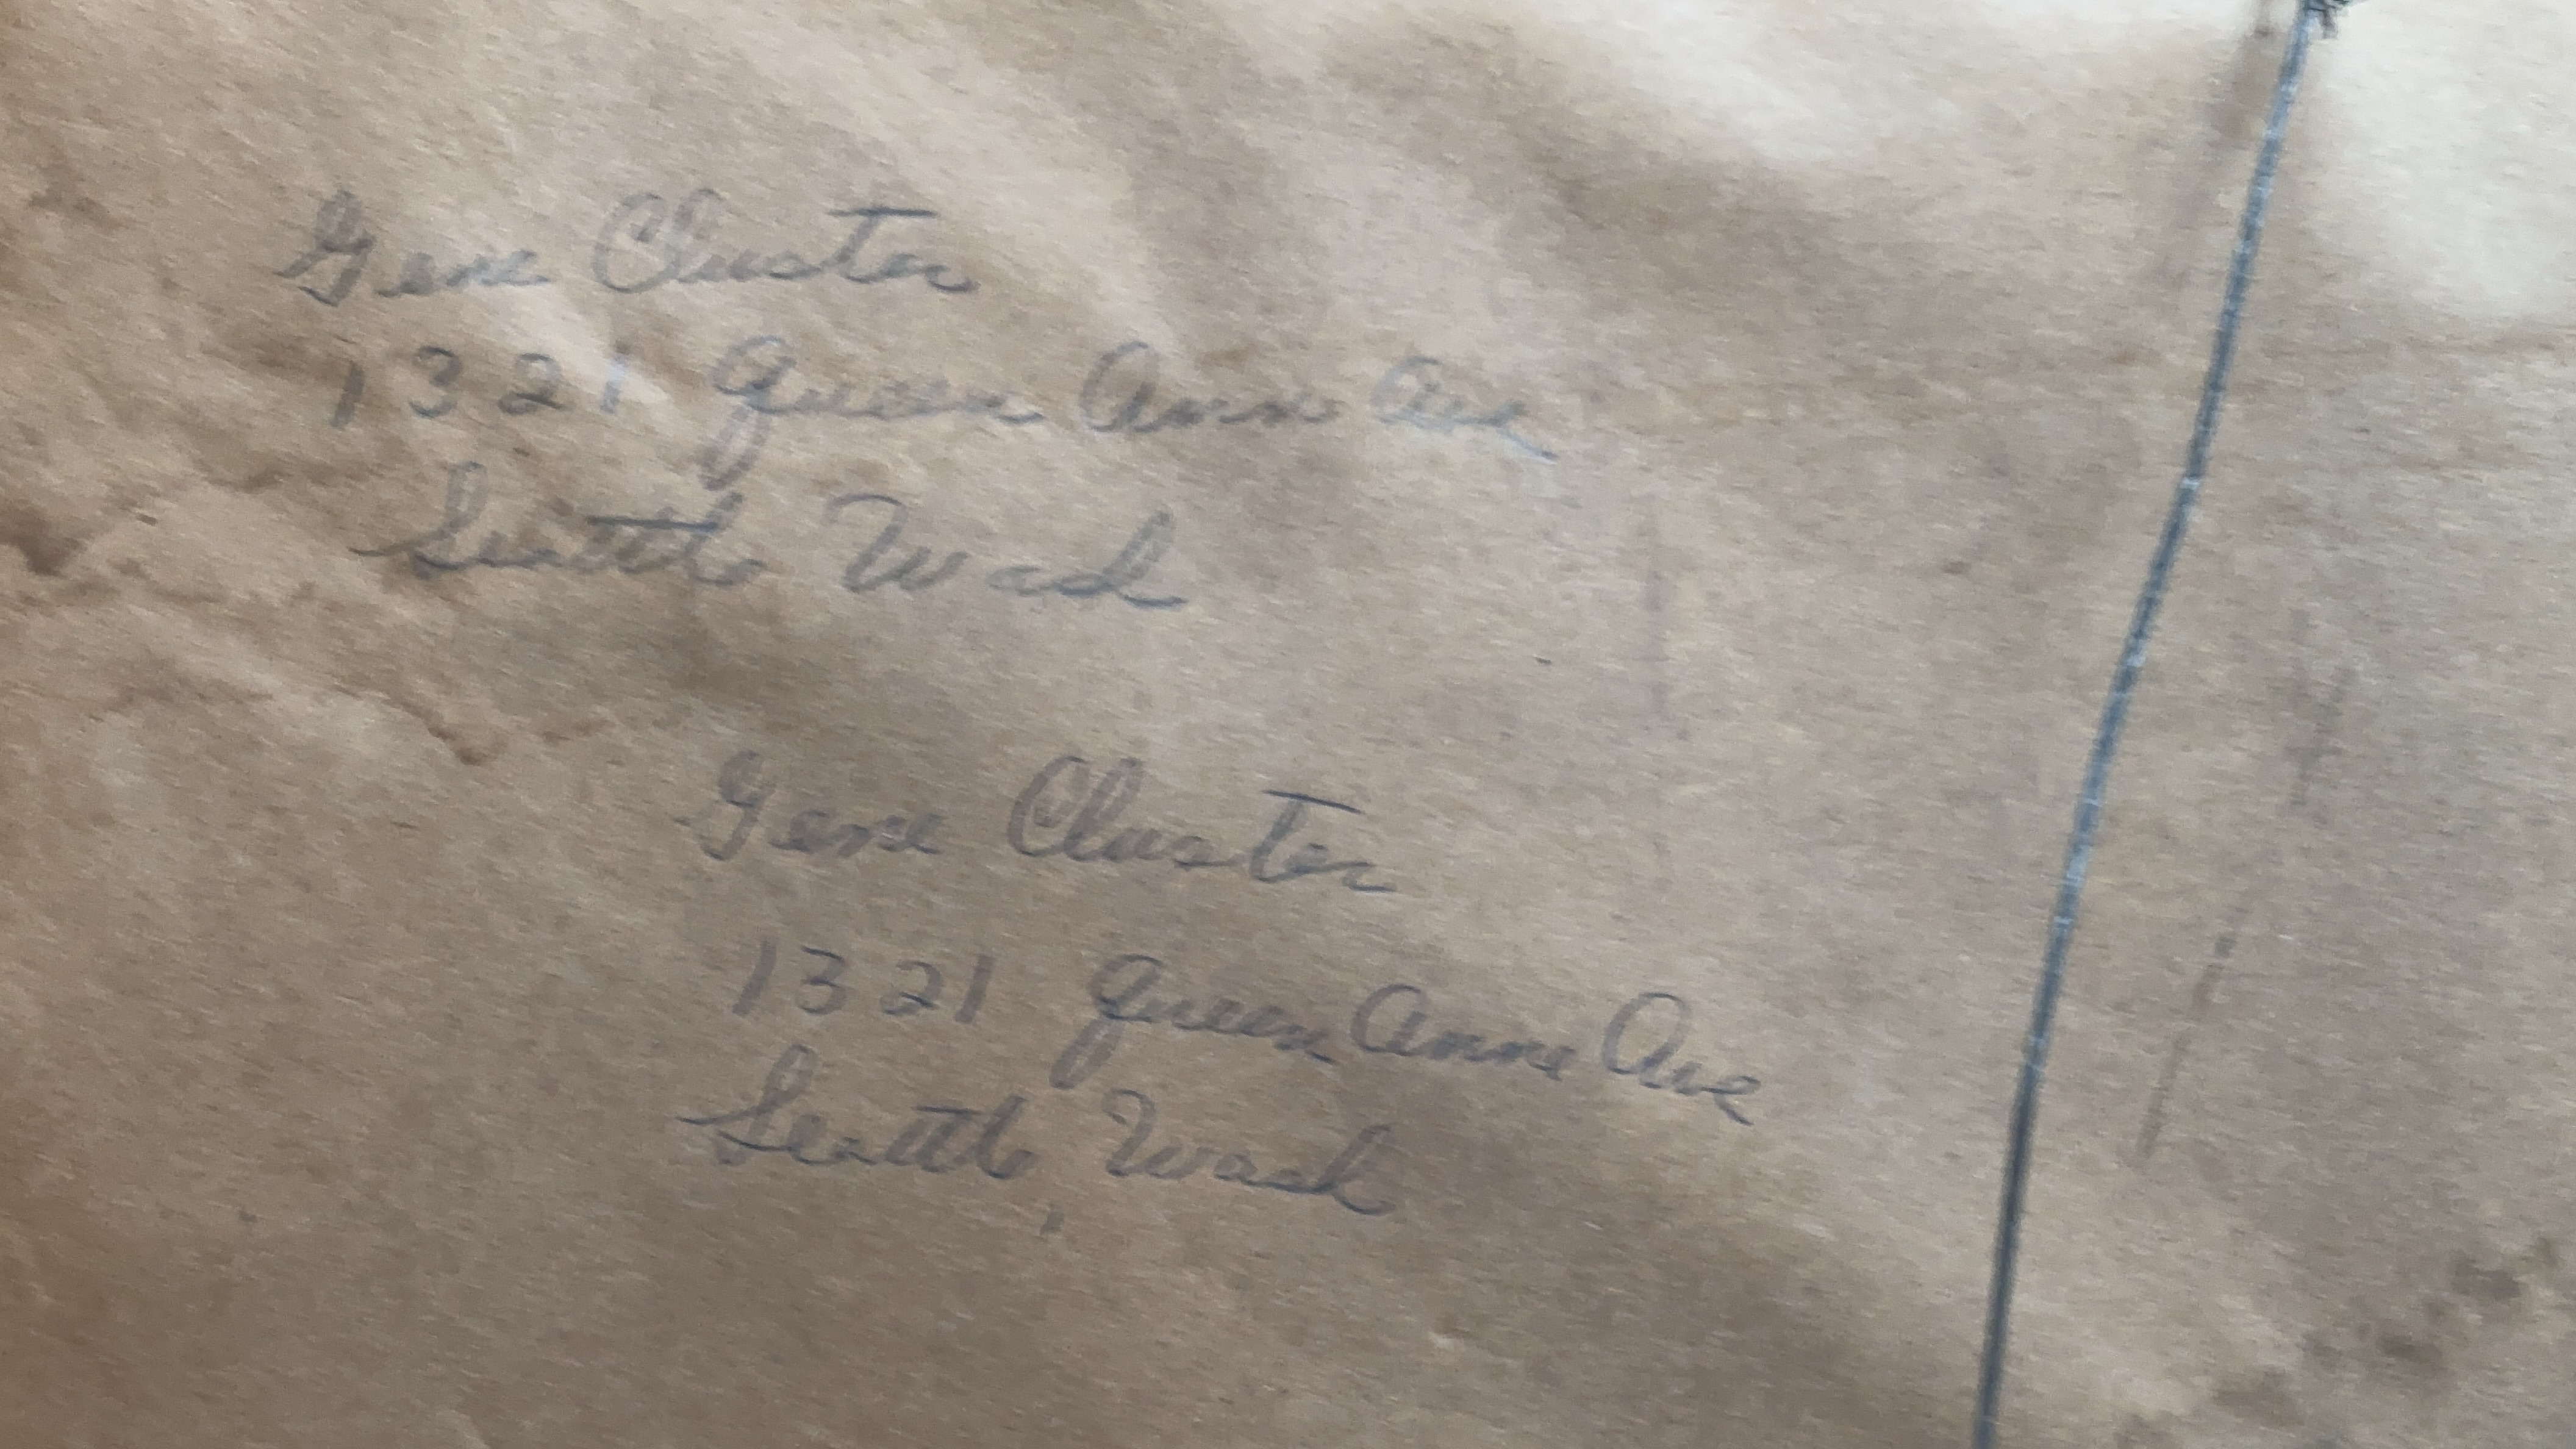 Gene Cluster
1321 Queen Ann Ave
Seattle Wash
Gene Cluster
1321 Queen Anne Ave
Seattle, Wash